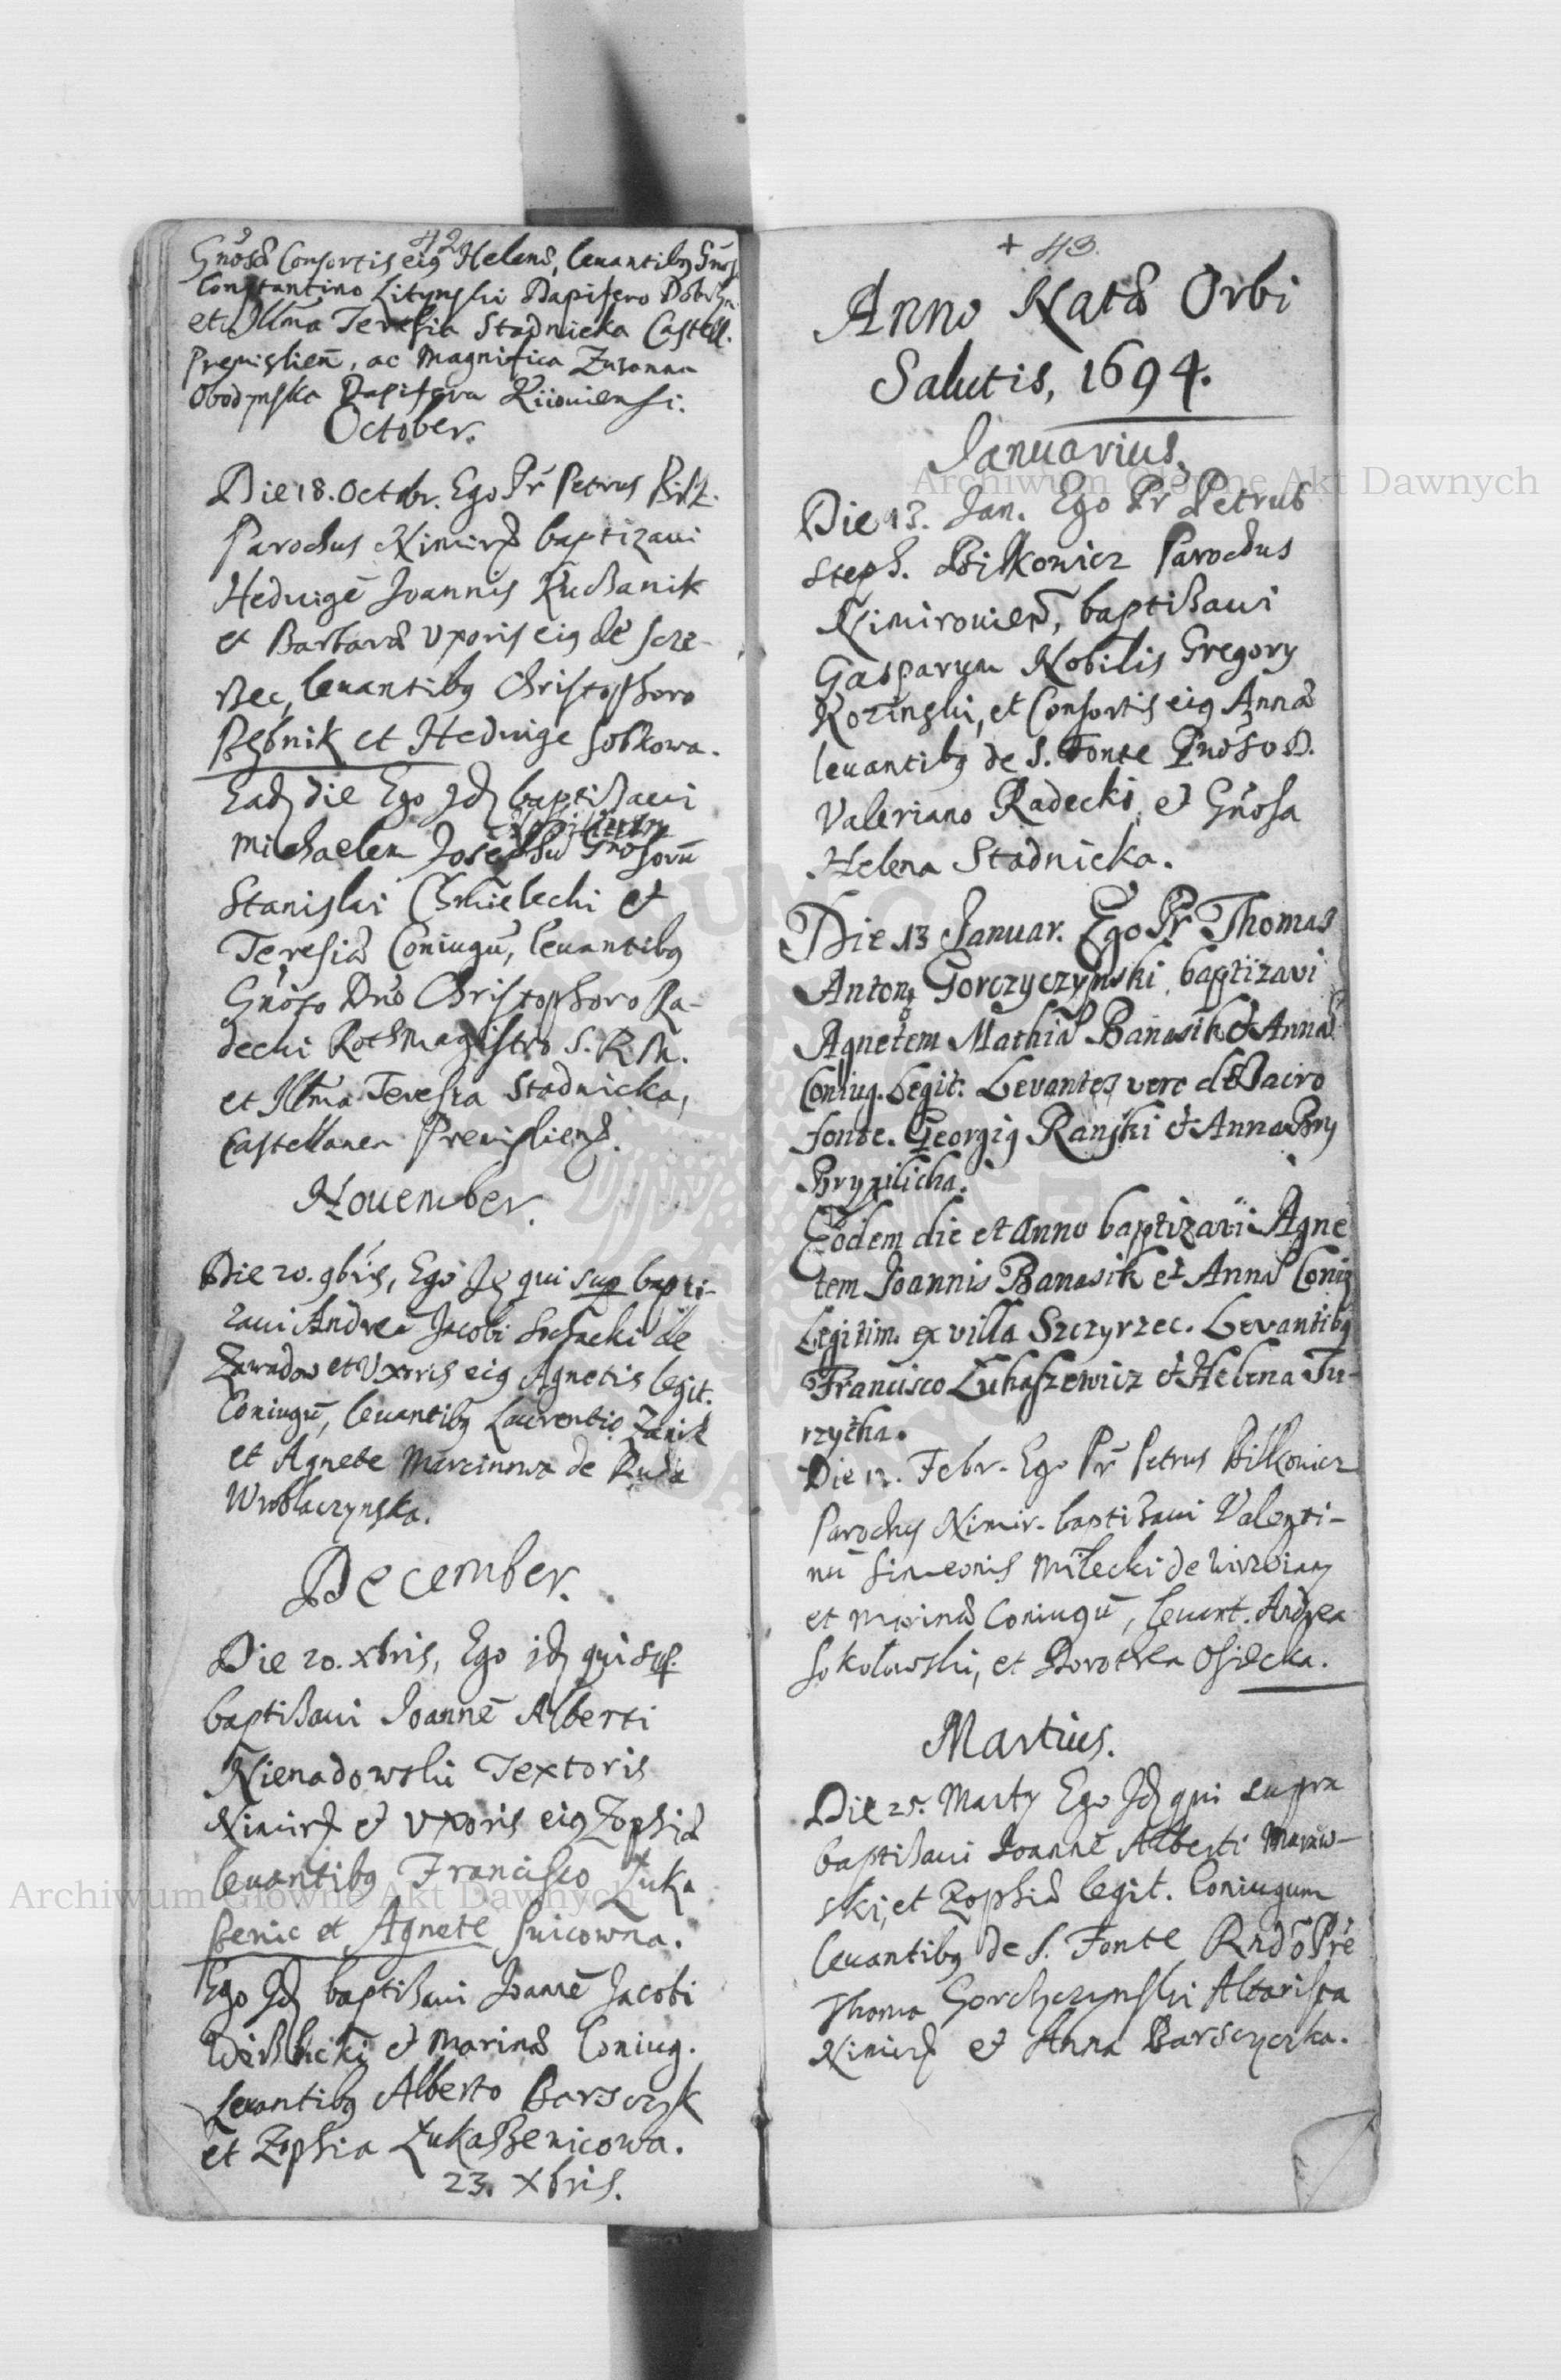 42
Gnosæ Consortis eiꝰ Helenæ, levantibꝰ Gnos
Constantino Litynski Dapifero Dobrzyn.
et Illma Teresia Stadnicka Castell.
Premislien, ac Magnifica Zuzanna
Obodynska Dapifera Kiioviensi.
October.
Die 18. Octobr. Ego Pr Petrus Bilk.
Parochus Nimir baptizavi
Hedvigē Joannis Kuchanik
et Barbaræ Uxoris eiꝰ de Szcze-
rzec, levantibꝰ Christophoro
Rębnik et Hedvige Sobkowa.
Eadē die Ego Idē baptisavi
Michaelem Josephū Gnosorū
Stanislai Chmielecki et
Teresiæ Coniugū, levantibꝰ
Gnoso Dno Christophoro Ra-
decki Rothmagistro S. R. M.
et Illma Teresia Stadnicka,
Castellanea Premisliens.
November.
Die 20. 9bris, Ego Idē qui sup bapti-
zavi Andreā Jacobi Sochacki de
Zawadow et Uxoris eiꝰ Agnetis legit.
Coniugū, levantibꝰ Laurentio Zanik
et Agnete Marcinowa de Ruda
Wroblaczynska.
December.
Die 20. Xbris, Ego idē qui sup.
baptisavi Joannē Alberti
Nienadowski Textoris
Nimir et Uxoris eiꝰ Zophiæ
levantibꝰ Francisco Luka
ßenic et Agnete Suicowna.
Ego Idē baptisavi Joannē Jacobi
et Marinæ Coniug.
Levantibꝰ Alberto Barszczyk
et Zophia Lukaßenicowa.
23. Xbris.
+ 43.
Anno Natæ Orbi
Salutis, 1694.
Januarius.
Die 13. Jan. Ego Pr Petrus
Steph. Bilkowicz Parochus
Nimirovien, baptisavi
Gasparum Nobilis Gregory
Kozinski, et Consortis eiꝰ Annæ
levantibꝰ de S. Fonte Gnoso D.
Valeriano Radecki, et Gnosa
Helena Stadnicka.
Die 13 Januar. Ego Pr Thomas
Antonꝰ Gorczyczynski baptizavi
Agnetem Mathiæ Banasik et Annæ
Coniug. Legit. Levantes vero de Sacro
fonte. Georgiꝰ Ranski et Anna Bry
Bryzilicha.
Eodem die et Anno baptizavi Agne
tem Joannis Banasik et Annæ Coniꝰ
Legitim. ex villa Szczyrzec. Levantibꝰ
Francisco Lukaszewicz et Helena Tu-
rzytka.
Die 12. Febr. Ego Pr Petrus Bilkowicz
Parochꝰ Nimir. baptisavi Valenti-
nū Simeonis Milecki de
et Marinæ Coniugū, levant. Andrea
Sokolowski, et Dorothea Osiecka.
Martius.
Die 25. Marty Ego Idē qui supra
baptisavi Joannē Alberti
ski, et Zophiæ legit. Coniugum
levantibꝰ de S. Fonte Rndo Pre
Thoma Gorchczynski Altarista
Nimir et Anna Barszczczka.
Archiwum Główne Akt Dawnych
Archiwum Główne Akt Dawnych